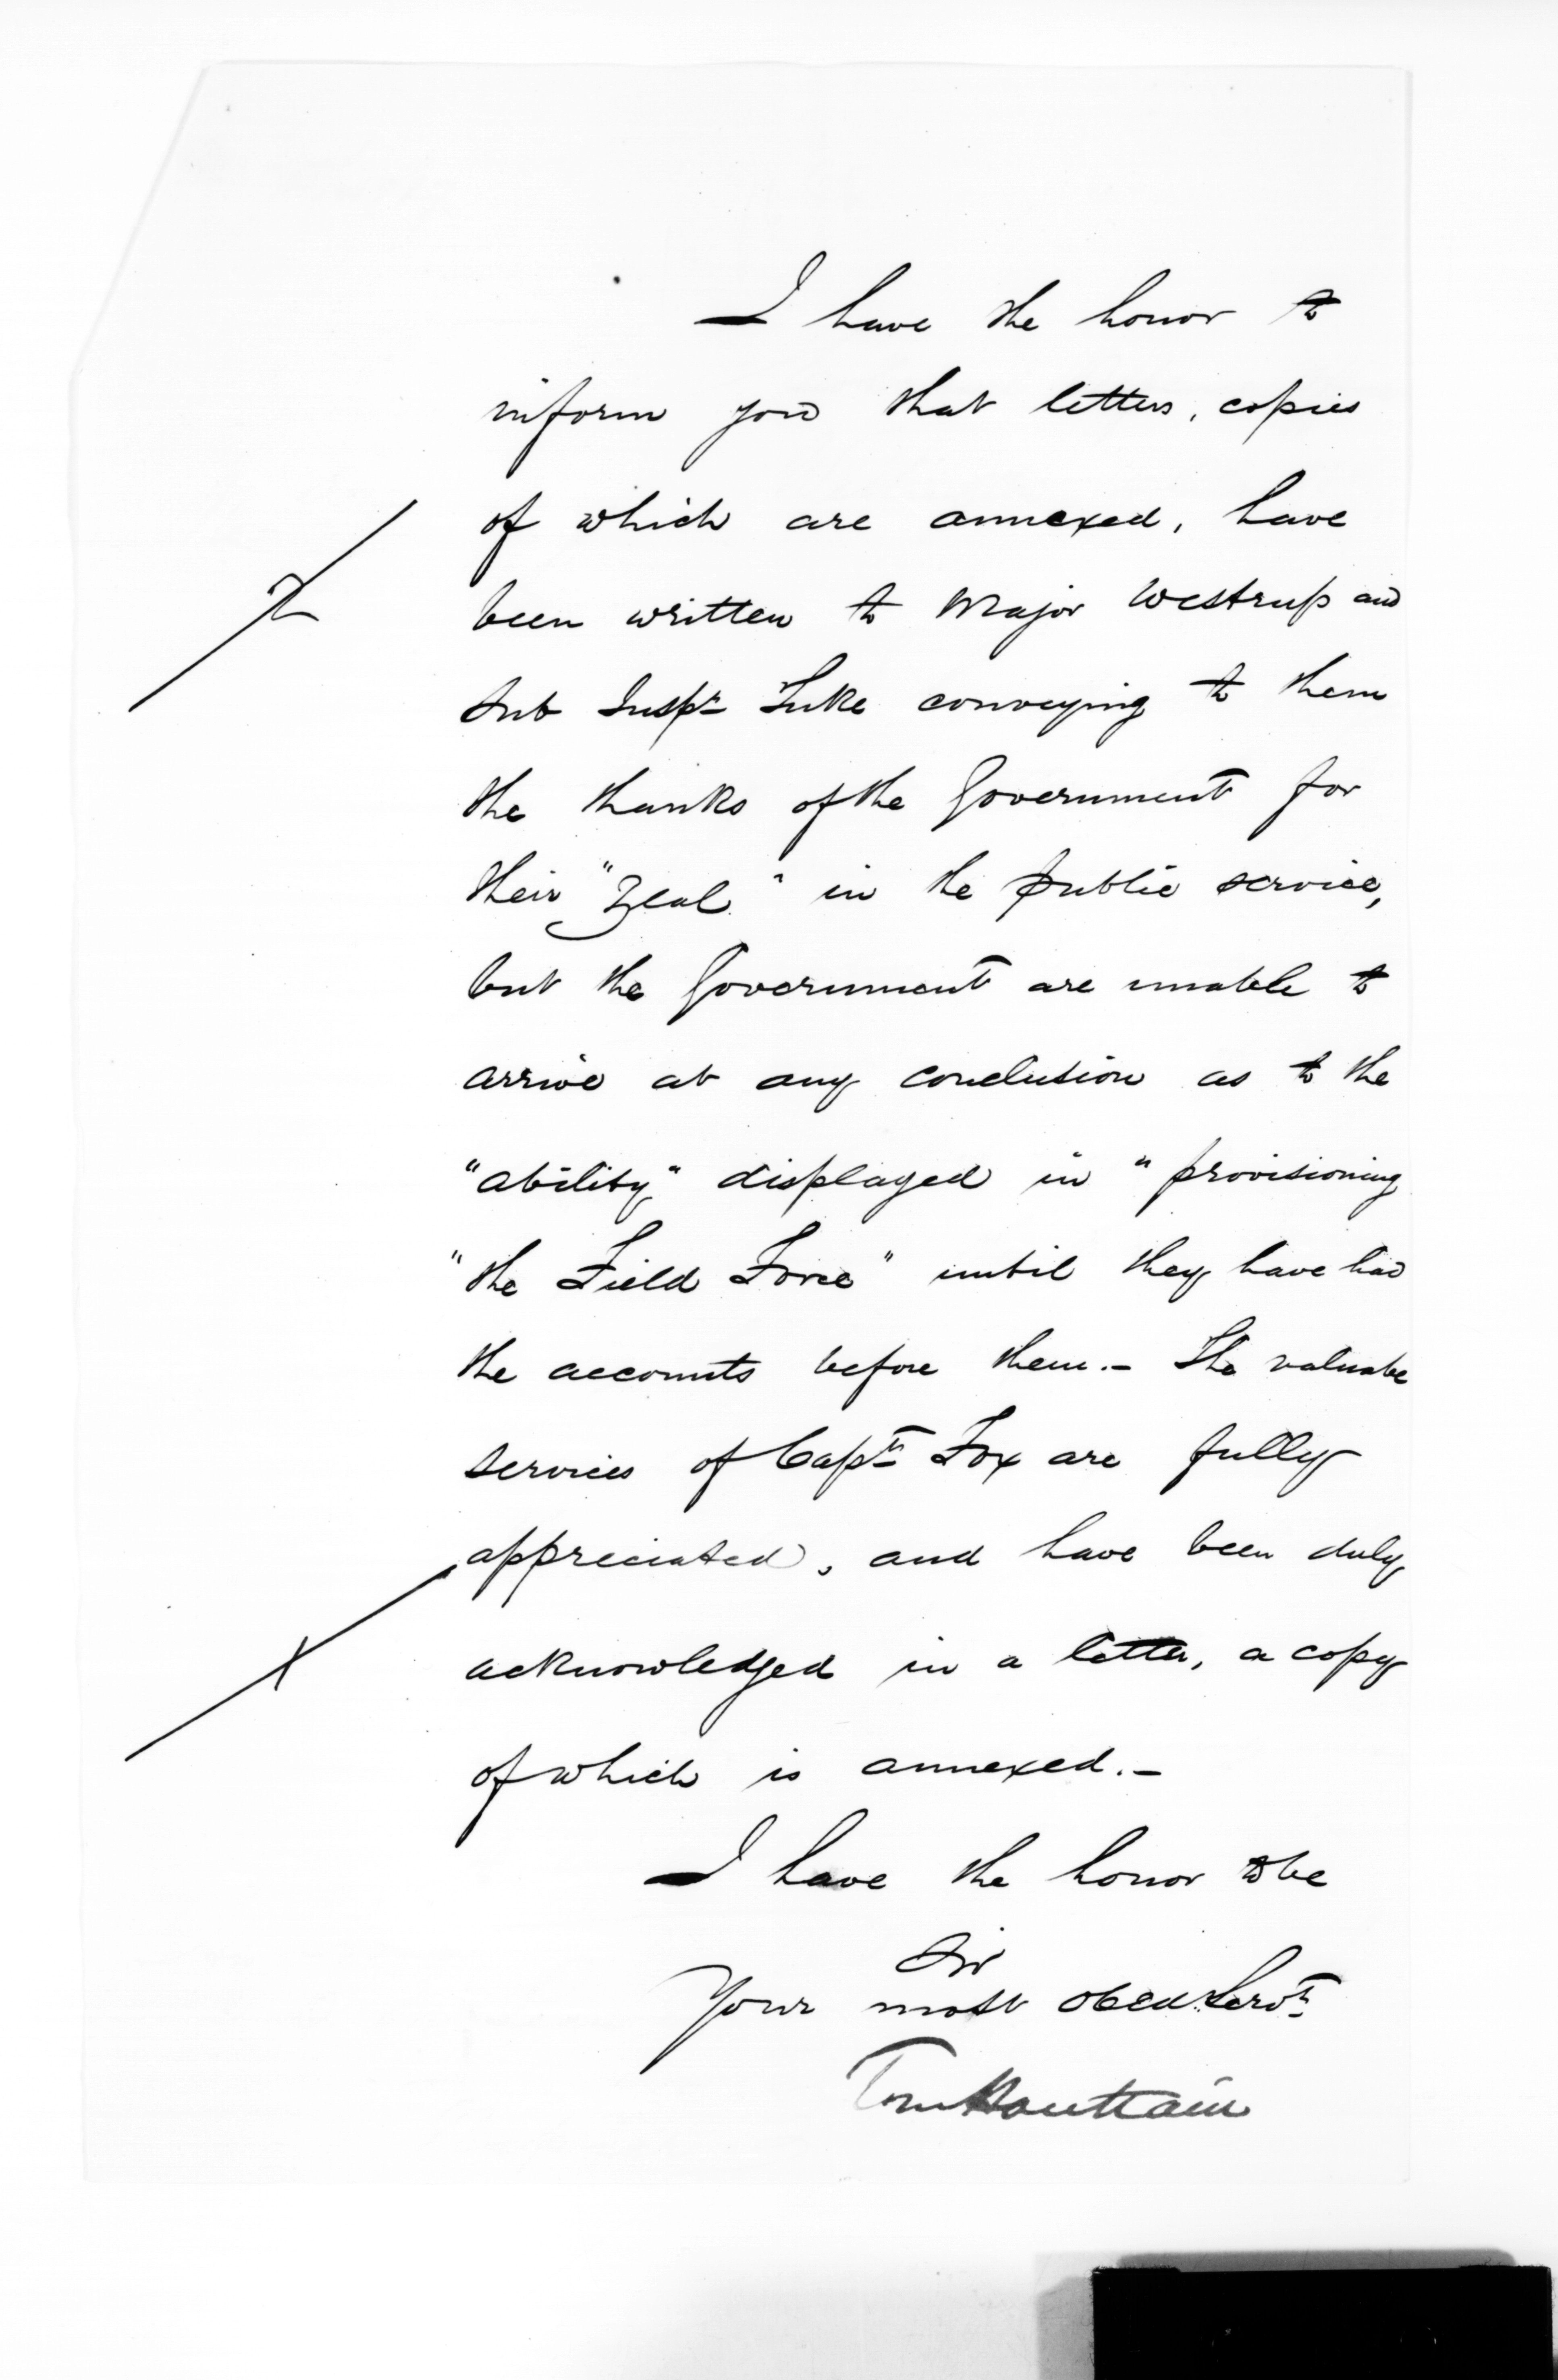 I have the honor to
inform you that letters, copies
of which are annexed, have
2
been written to Major Westrup and
Sub Inspr Tuke conveying to them
the thanks of the Government for
their "Zeal" in the public service,
but the Government are unable to
arrive at any conclusion as to the
"ability" displayed in "provisioning
"the Field Force" until they have had
the accounts before them.- The valuabe
services of Captn Fox are fully
appreciated, and have been duly
1
acknowledged in a letter, a copy
of which is annexed.-
I have the honor to be
Sir
Your most obed. Servt